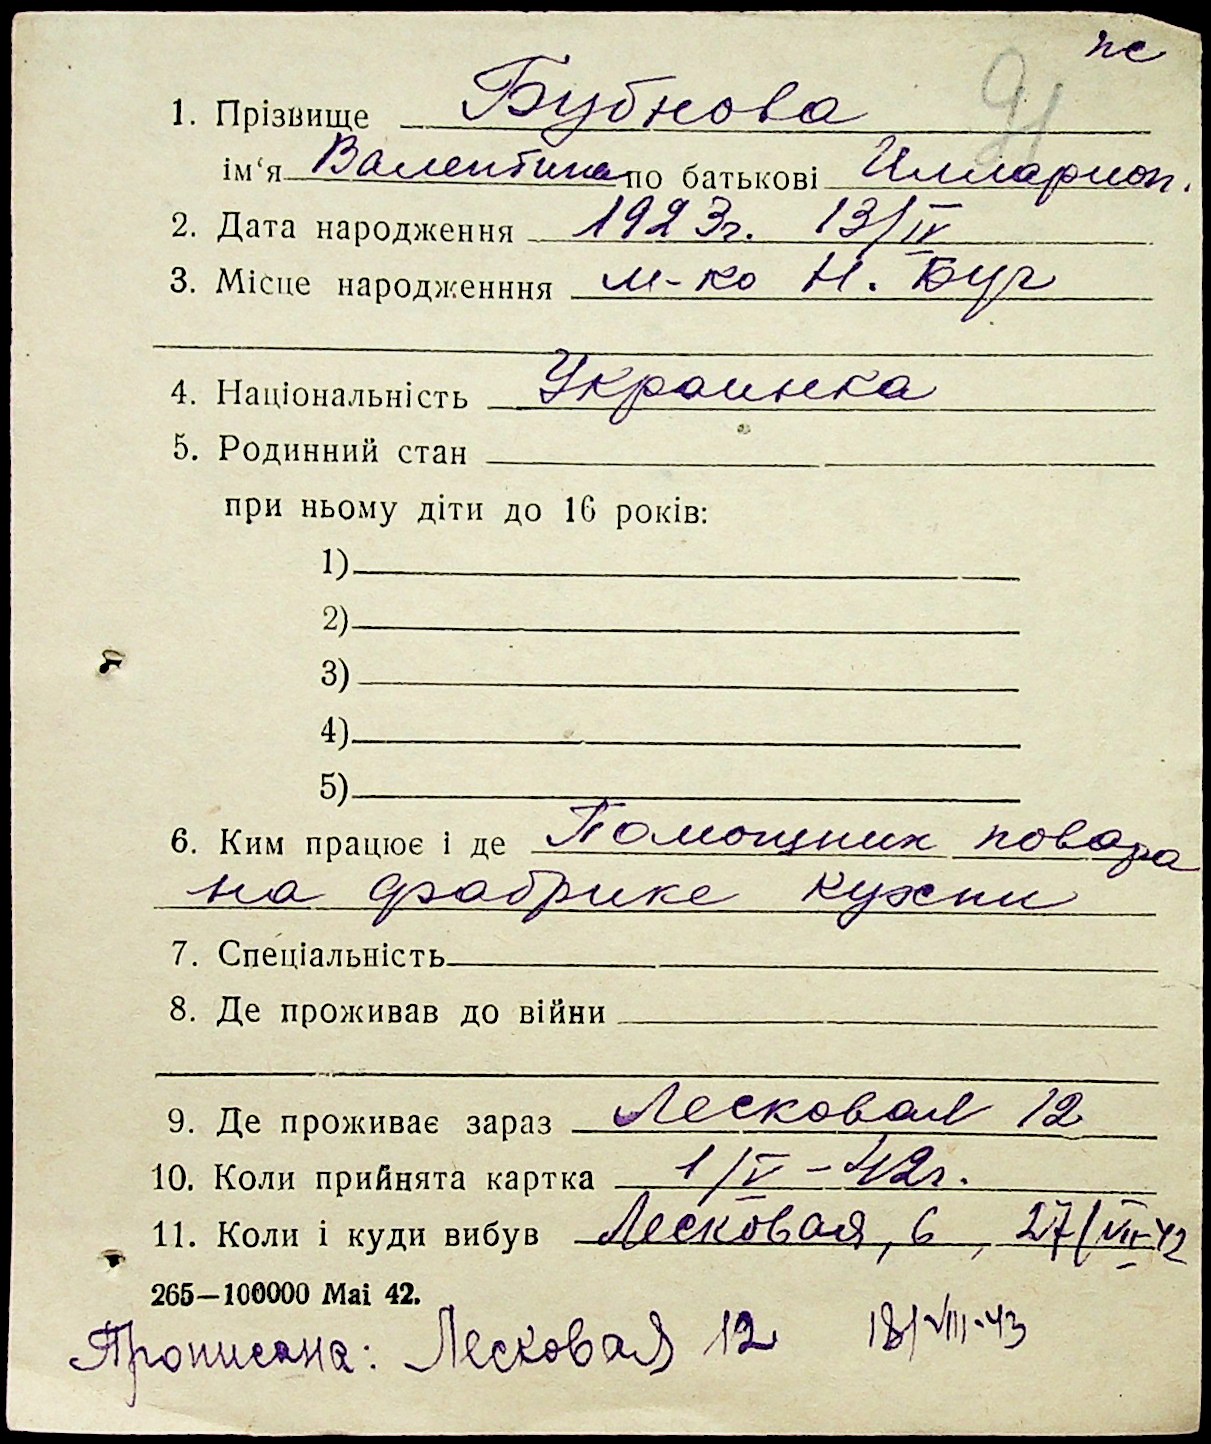 пс
91
1. Прізвище Бубнова
ім‘я Валентина по батькові Илларион.
2. Дата народження 1923г. 13/IV
3. Місце народженння м-ко Н. Буг
4. Національність Украинка
5. Родинний стан
при ньому діти до 16 років:
1)
2)
3)
4)
5)
6. Ким працює і де Помощник повара
на фабрике кухни
7. Спеціальність
8. Де проживав до війни
9. Де проживає зараз Лесковая 12
10. Коли прийнята картка 1/V-42г.
11. Коли і куди вибув Лесковая, 6, 27/VII-42
265—100000 Mai 42.
Прописана: Лесковая 12 18/VIII-43